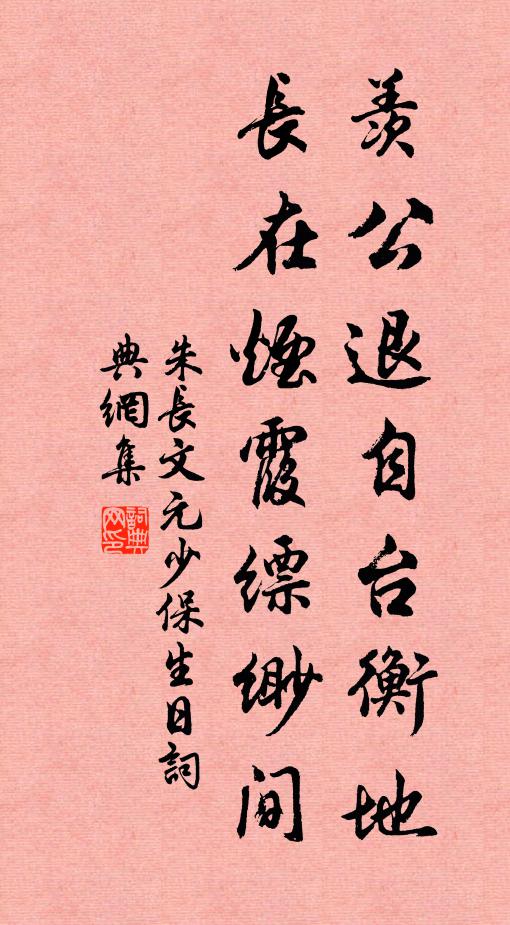 羨公退自台衡地
長在煙霞縹緲間
朱長文元少保生日詞
典網集
詞典網印